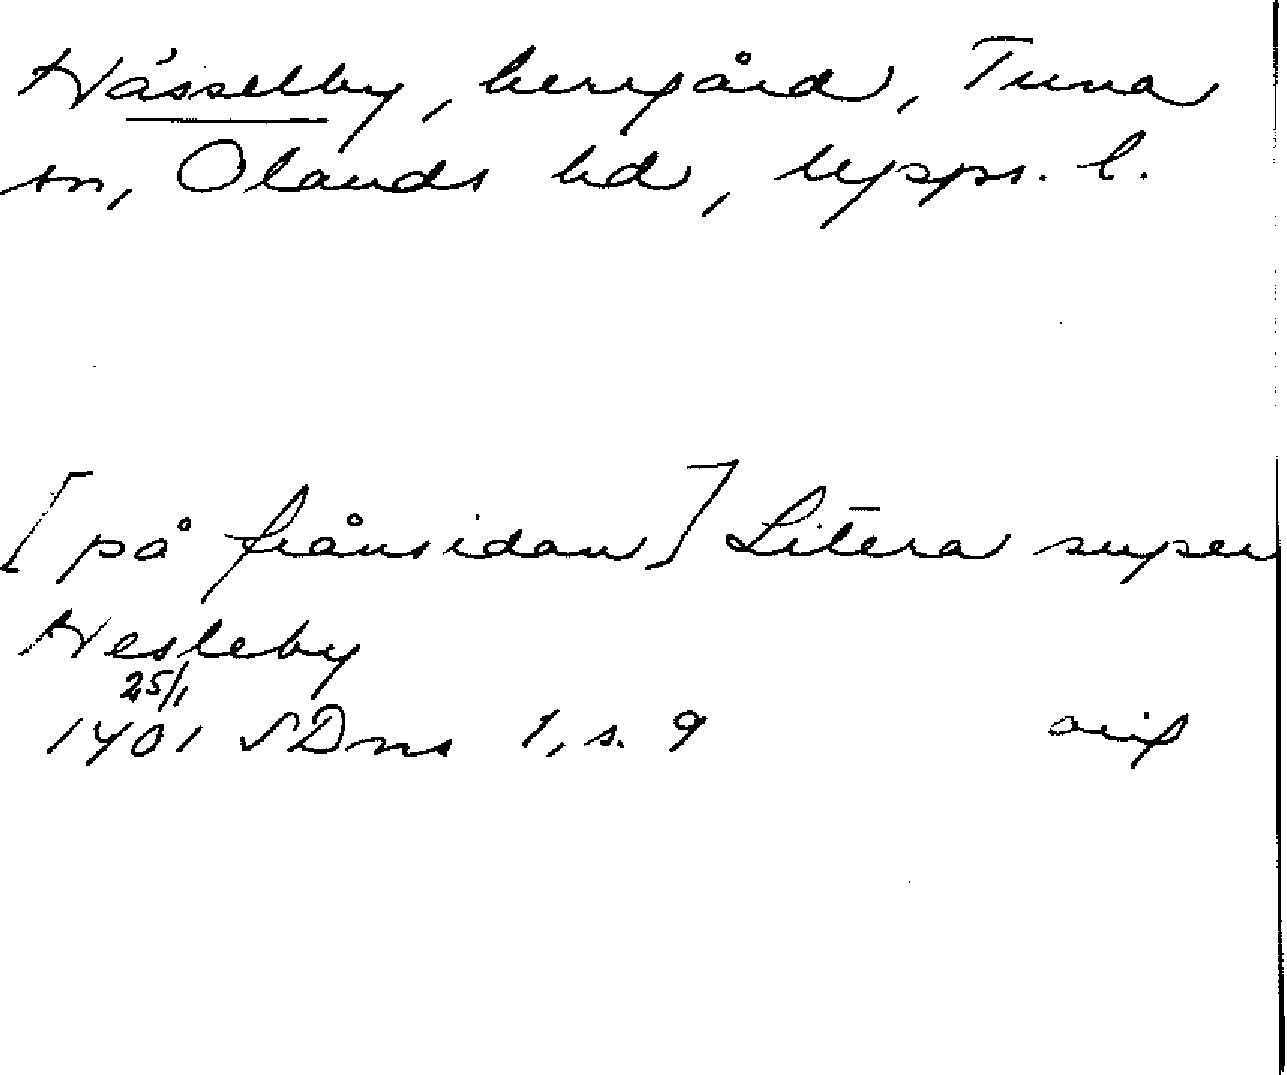 Hässelby, herrgård, Tuna
sn, Olands hd, Upps. l.
[på frånsidan] Litera super
Hesleby
25/1
1401 SDns 1, s. 9 orig